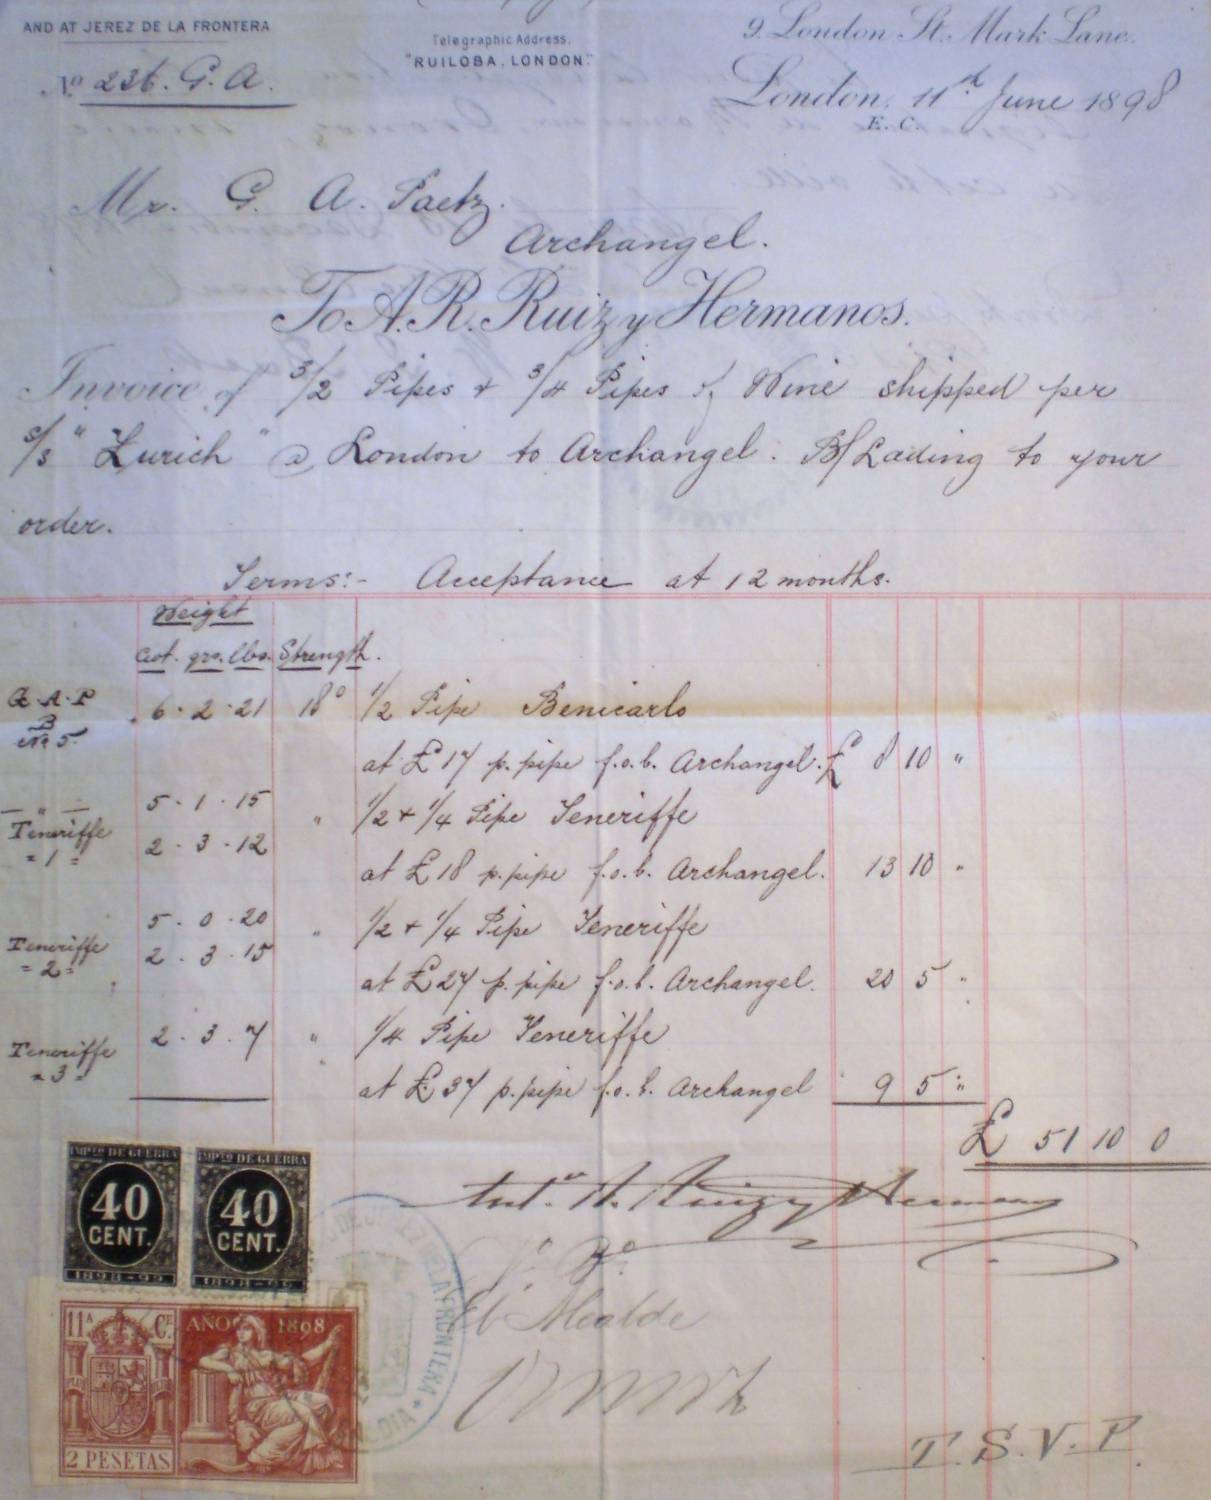 AND AT JEREZ DE LA FRONTERA
Telegraphic Address,
"RUILOBA, LONDON."
9. London St. Mark Lane.
No 236. G. A.
London, 11th June 1898
E. C.
Mr. G. A. Paetz.
Archangel.
To A. R. Ruiz y Hermanos.
Invoice of 3/2 Pipes & 3/4 Pipes of Wine shipped per
s/s "Zurich" @ London to Archangel: B/Lading to your
order.
Terms:- Acceptance at 12 months.
Weight
cwt. qrs. lbs. Strength.
G.A.P
B
No 5.
6 . 2 . 21 18° 1/2 Pipe Benicarlo
at £17 p. pipe f.o.b. Archangel. £ 8 10 "
— " —
5 . 1 . 15 " 1/2 + 1/4 Pipe Teneriffe
Teneriffe
" 1 "
2 . 3 . 12
at £18 p. pipe f.o.b. Archangel. 13 10 "
5 . 0 . 20 " 1/2 + 1/4 Pipe Teneriffe
Teneriffe
= 2 =
2 . 3 . 15
at £27 p. pipe f.o.b. Archangel. 20 5 "
2 . 3 . 7 " 1/4 Pipe Teneriffe
Teneriffe
" 3 "
at £37 p. pipe f.o.b. Archangel 9 5 "
£ 51 10 0
IMPTO DE GUERRA
40
CENT.
1898-99
IMPTO DE GUERRA
40
CENT.
1898-99
Ant. R. Ruiz y Hermanos
Vº Bº
El Alcalde
DE JEREZ DE LA FRONTERA
11ª Ce
AÑO 1898
PLUS
2 PESETAS
T.S.V.P.